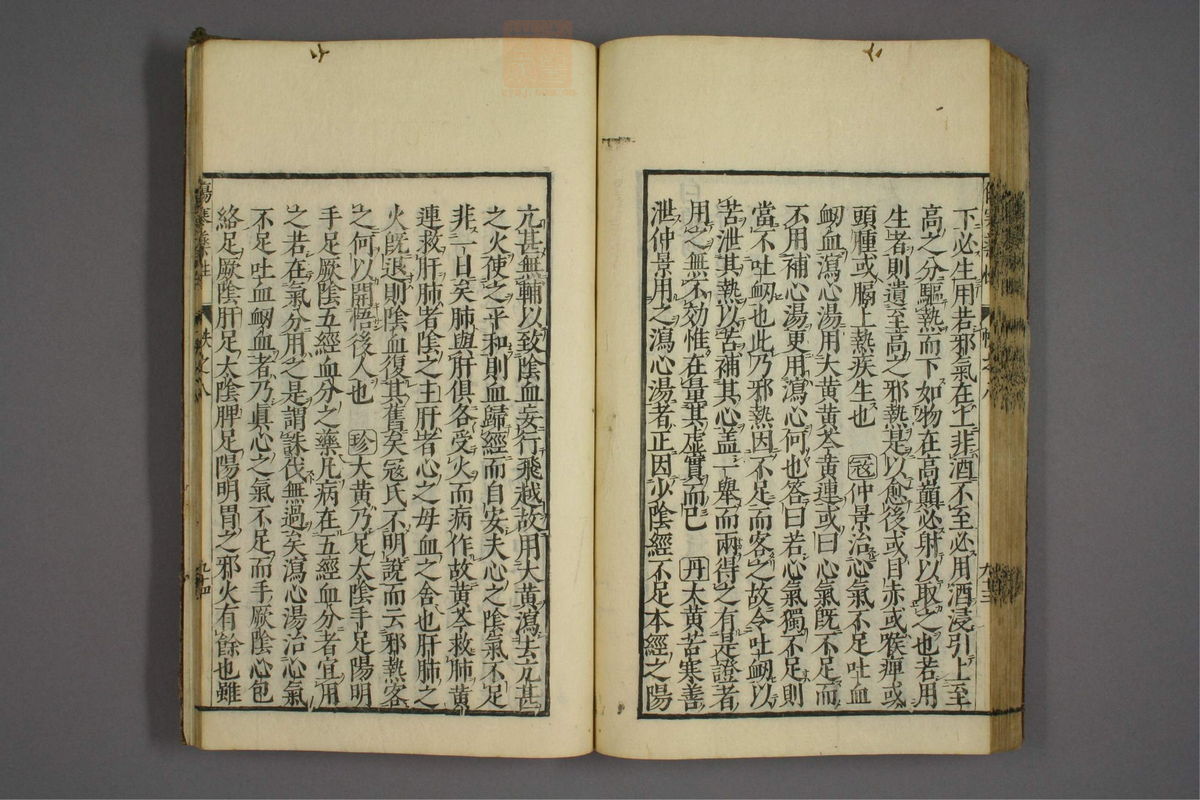 下必生用若邪氣在上非酒不至必用酒浸引上至
高之分驅熱而下如物在高巔必射以取之也若用
生者則遺至高之邪熱是以愈後或目赤或喉痺或
頭腫或膈上熱疾生也 寇仲景治心氣不足吐血
衂血瀉心湯用大黄黄芩黄連或曰心氣既不足而
不用補心湯更用瀉心何也答曰若心氣獨不足則
當不吐衂也此乃邪熱因不足而客之故令吐衂以
苦泄其熱以苦補其心盖一舉而兩得之有是證者
用之無不効惟在量其虚實而已 丹大黄苦寒善
泄仲景用之瀉心湯者正因少陰經不足本經之陽
亢甚無輔以致陰血妄行飛越故用大黄瀉去亢甚
之火使之平和則血歸經而自安夫心之陰氣不足
非一日矣肺與肝俱各受火而病作故黄芩救肺黄
連救肝肺者陰之主肝者心之母血之舍也肝肺之
火既退則陰血復其舊矣寇氏不明說而云邪熱客
之何以開悟後人也 珍大黄乃足太陰手足陽明
手足厥陰五經血分之藥凡病在五經血分者宜用
之若在氣分用之是謂誅伐無過矣瀉心湯治心氣
不足吐血衂血者乃眞心之氣不足而手厥陰心包
絡足厥陰肝足太陰脾足陽明胃之邪火有餘也雖
傷寒藥性 帙之八 九四